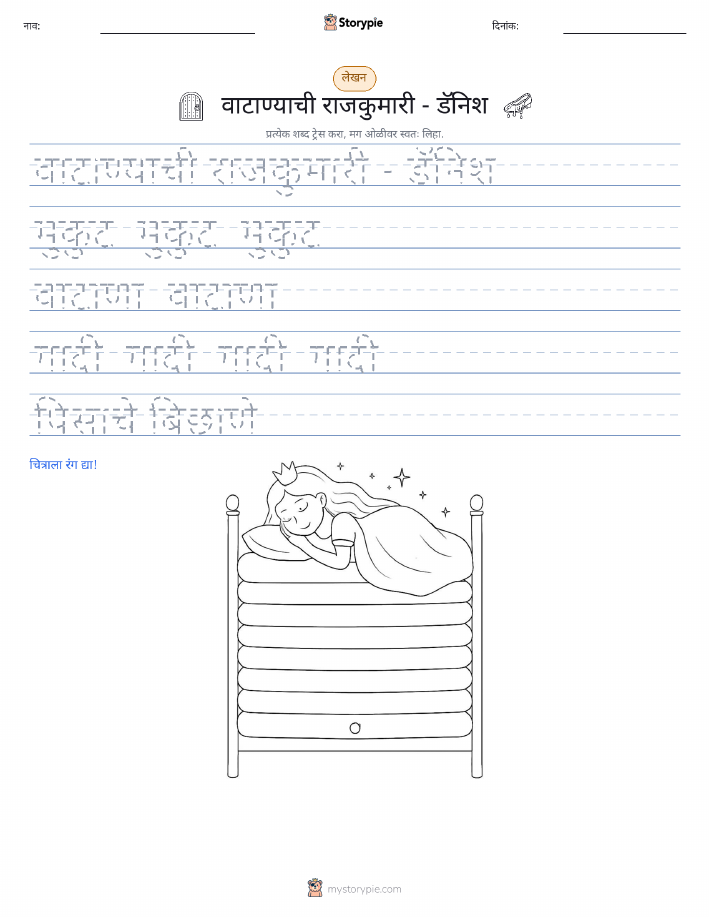 नाव:
Storypie
दिनांक:
लेखन
वाटाण्याची राजकुमारी - डॅनिश
प्रत्येक शब्द ट्रेस करा, मग ओळीवर स्वतः लिहा.
वाटाण्याची राजकुमारी - डॅनिश
मुकुट मुकुट मुकुट
वाटाणा वाटाणा
गादी गादी गादी गादी
पिसाचे बिछाणे
चित्राला रंग द्या!
mystorypie.com